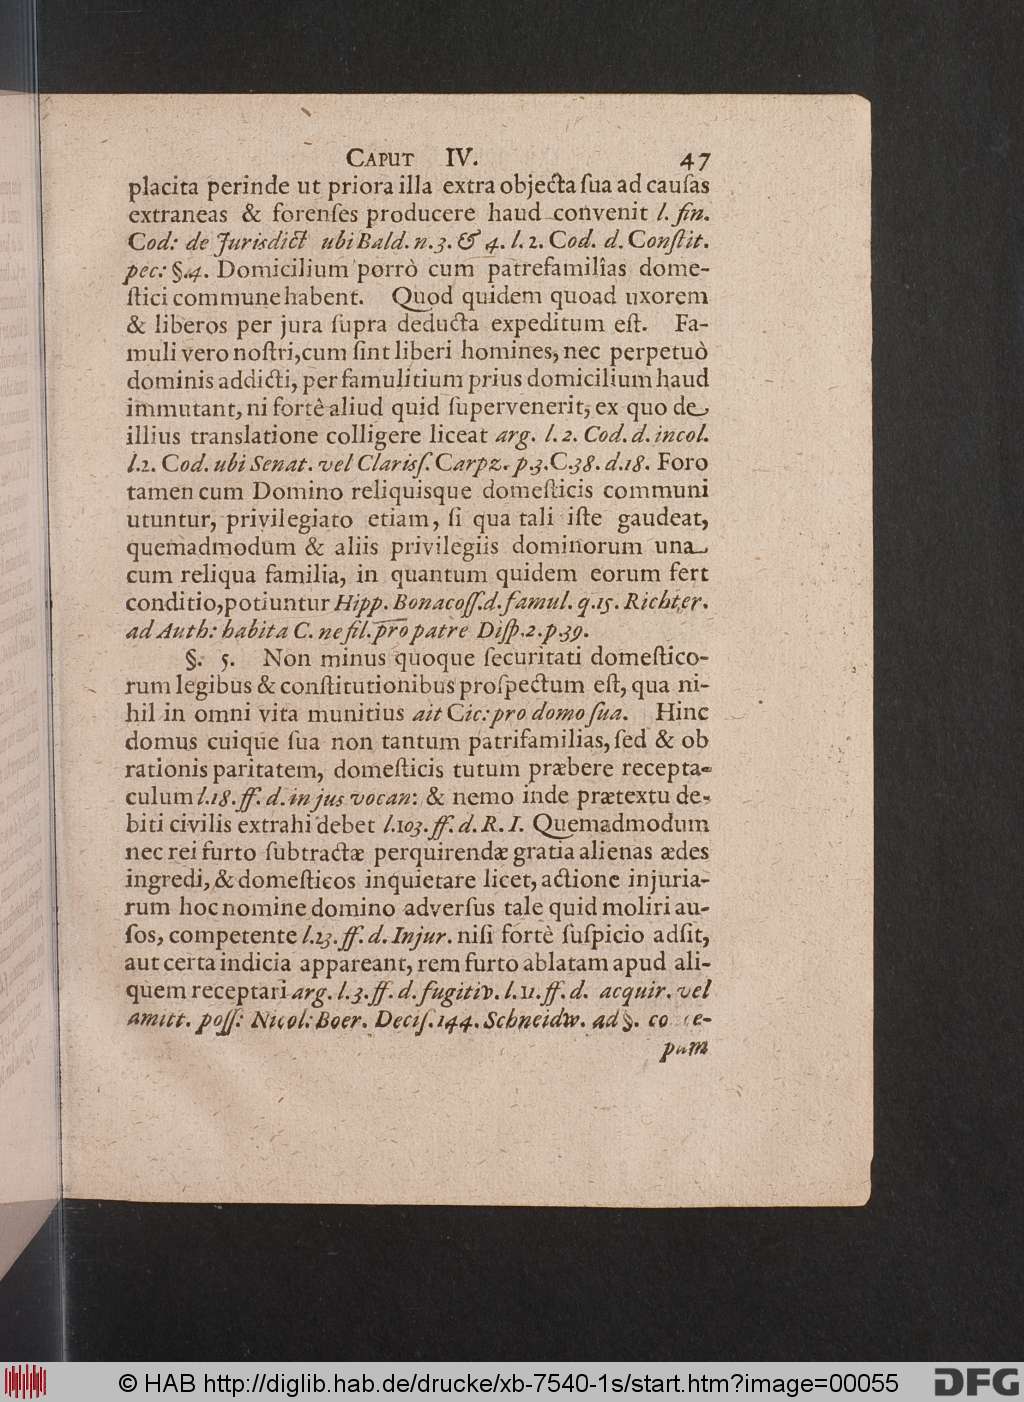 CAPUT IV. 47
placita perinde ut priora illa extra objecta ſua ad cauſas
extraneas & forenſes producere haud convenit l. fin.
Cod: de Jurisdict ubi Bald. n. 3. & 4. l. 2. Cod. d. Conſtit.
pec: §.4. Domicilium porrò cum patrefamiliâs dome-
ſtici commune habent. Quod quidem quoad uxorem
& liberos per jura ſupra deducta expeditum eſt. Fa-
muli vero noſtri, cum ſint liberi homines, nec perpetuò
dominis addicti, per famulitium prius domicilium haud
immutant, ni fortè aliud quid ſupervenerit, ex quo de
illius translatione colligere liceat arg. l. 2. Cod. d. incol.
l.2. Cod. ubi Senat. vel Clariſſ. Carpz. p.3.C.38. d.18. Foro
tamen cum Domino reliquisque domeſticis communi
utuntur, privilegiato etiam, ſi qua tali iſte gaudeat,
quemadmodum & aliis privilegiis dominorum una
cum reliqua familia, in quantum quidem eorum fert
conditio, potiuntur Hipp. Bonacoſſ. d. famul. q.15. Richter.
ad Auth: habita C. ne fil. pro patre Diſp.2.p.39.
§. 5. Non minus quoque ſecuritati domeſtico-
rum legibus & conſtitutionibus proſpectum eſt, qua ni-
hil in omni vita munitius ait Cic: pro domo ſua. Hinc
domus cuique ſua non tantum patrifamilias, ſed & ob
rationis paritatem, domeſticis tutum præbere recepta-
culum l.18. ff. d. in jus vocan: & nemo inde prætextu de-
biti civilis extrahi debet l.103. ff. d. R. I. Quemadmodum
nec rei furto ſubtractæ perquirendæ gratia alienas ædes
ingredi, & domeſticos inquietare licet, actione injuria-
rum hoc nomine domino adverſus tale quid moliri au-
ſos, competente l.23. ff. d. Injur. niſi fortè ſuſpicio adſit,
aut certa indicia appareant, rem furto ablatam apud ali-
quem receptari arg. l.3. ff. d. fugitiv. l.11. ff. d. acquir. vel
amitt. poſſ: Nicol: Boer. Deciſ. 144. Schneidw. ad §.
pum
© HAB http://diglib.hab.de/drucke/xb-7540-1s/start.htm?image=00055
DFG